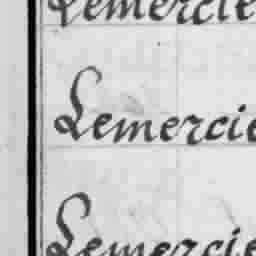 Lemercie
Lemercie
Lemercie